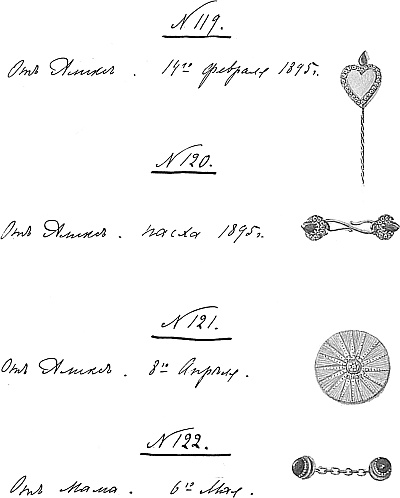 N 119.
Отъ Аликсъ. 14го февраля 1895г.
N 120.
Отъ Аликсъ. пасха 1895г.
N 121.
Отъ Аликсъ. 8го Апрѣля.
N 122.
Отъ Мама. 6го Мая.